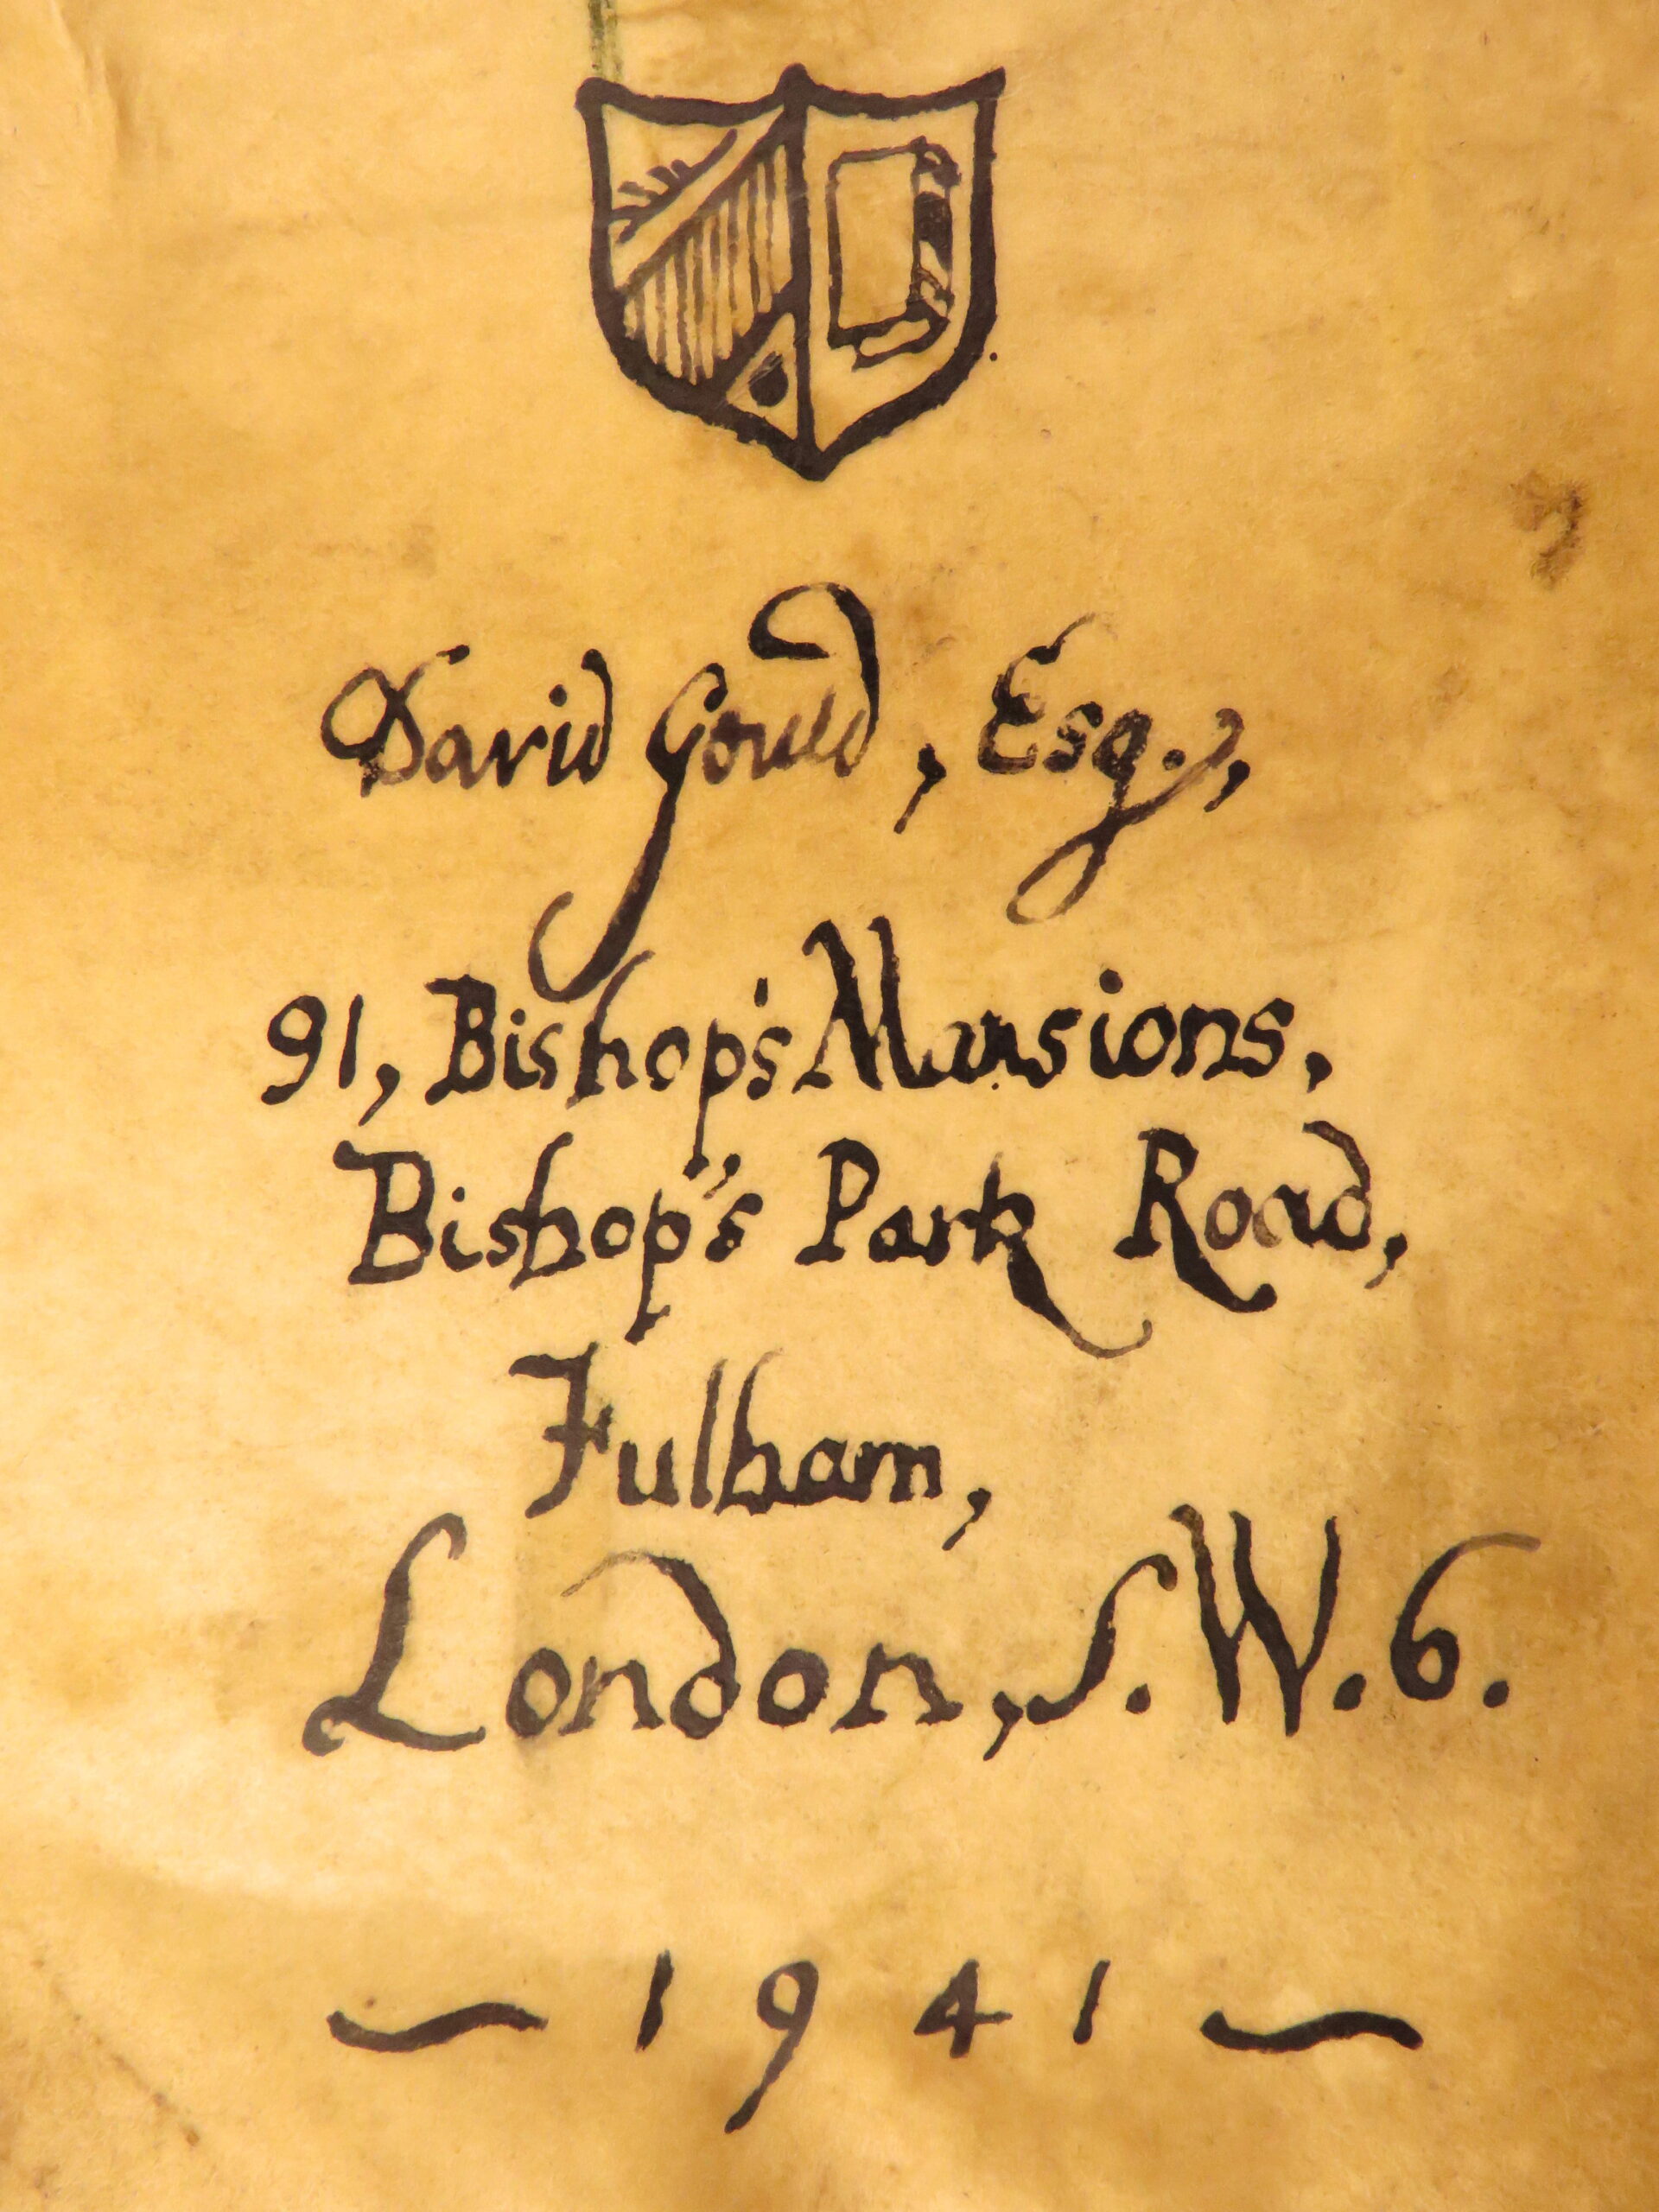 David Gould, Esq.,
91, Bishop's Mansions,
Bishop's Park Road,
Fulham,
London, S.W.6.
~ 1941 ~